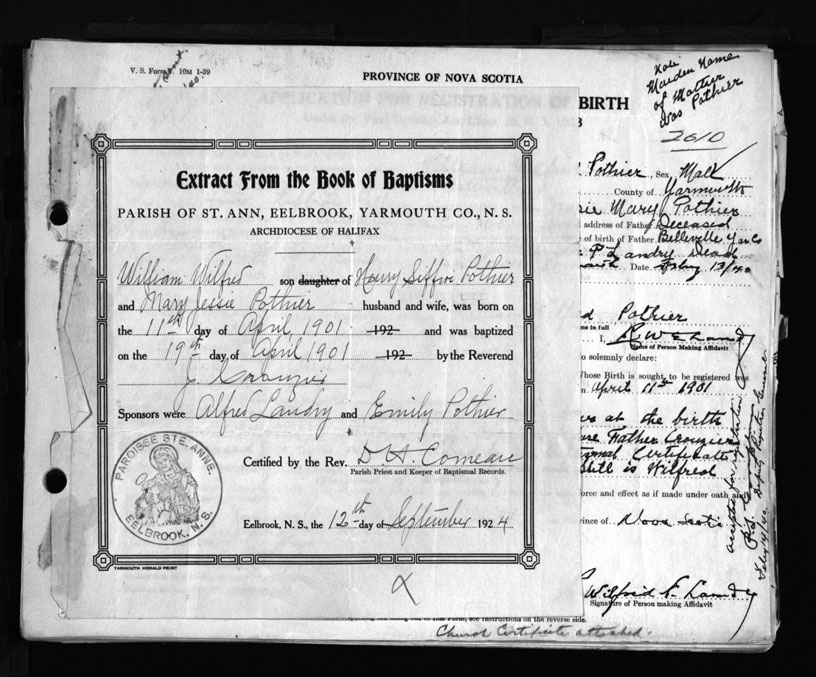 V. S. Form 10M 1-39
PROVINCE OF NOVA SCOTIA
Note
Maiden Name
of Mother
was Pothier
2610
BIRTH
Extract From the Book of Baptisms
PARISH OF ST. ANN, EELBROOK, YARMOUTH CO., N. S.
ARCHDIOCESE OF HALIFAX
William Wilfred son daughter of Henry Siffroi Pothier
and Mary Jessie Pothier husband and wife, was born on
the 11th day of April 1901 192 and was baptized
on the 19th day of April 1901 192 by the Reverend
J. Crouzier
Sponsors were Alfred Landry and Emily Pothier
Certified by the Rev. D. H. Comeau
Parish Priest and Keeper of Baptismal Records.
PAROISSE STE. ANNE.
EELBROOK, N. S.
Eelbrook, N. S., the 12th day of September 1924
YARMOUTH HERALD PRINT
Pothier Sex, Male
County of Yarmouth
Mary Pothier
address of Father Deceased
of birth of Father Belleville Yar Co
P Landry Dead
Date May 13/40
Pothier
me in full
I,
Name of Person Making Affidavit
o solemnly declare:
hose Birth is sought to be registered was
n April 11th 1901
at the birth
Father Crouzier
Certificate
is Wilfred
orce and effect as if made under oath and
vince of Nova Scotia
Wilfrid P. Landry
Signature of Person making Affidavit
accepted for registration
Deputy Registrar General
of this Form, see instructions on the reverse side.
Church Certificate attached.